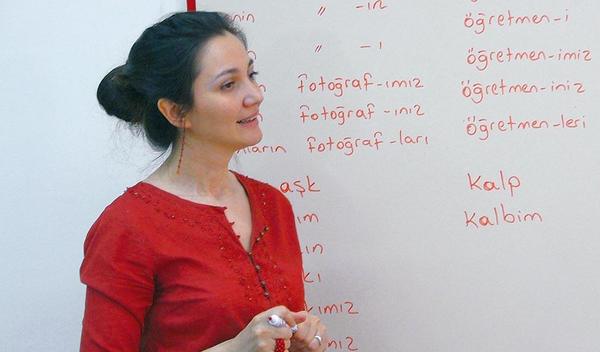 nin " -ın öğretmen-i
" -ı öğretmen-imiz
fotoğraf-ımız öğretmen-iniz
fotoğraf-ınız öğretmen-leri
ların fotoğraf-ları
aşk kalp
ım kalbim
ın
kı
kımız
nız